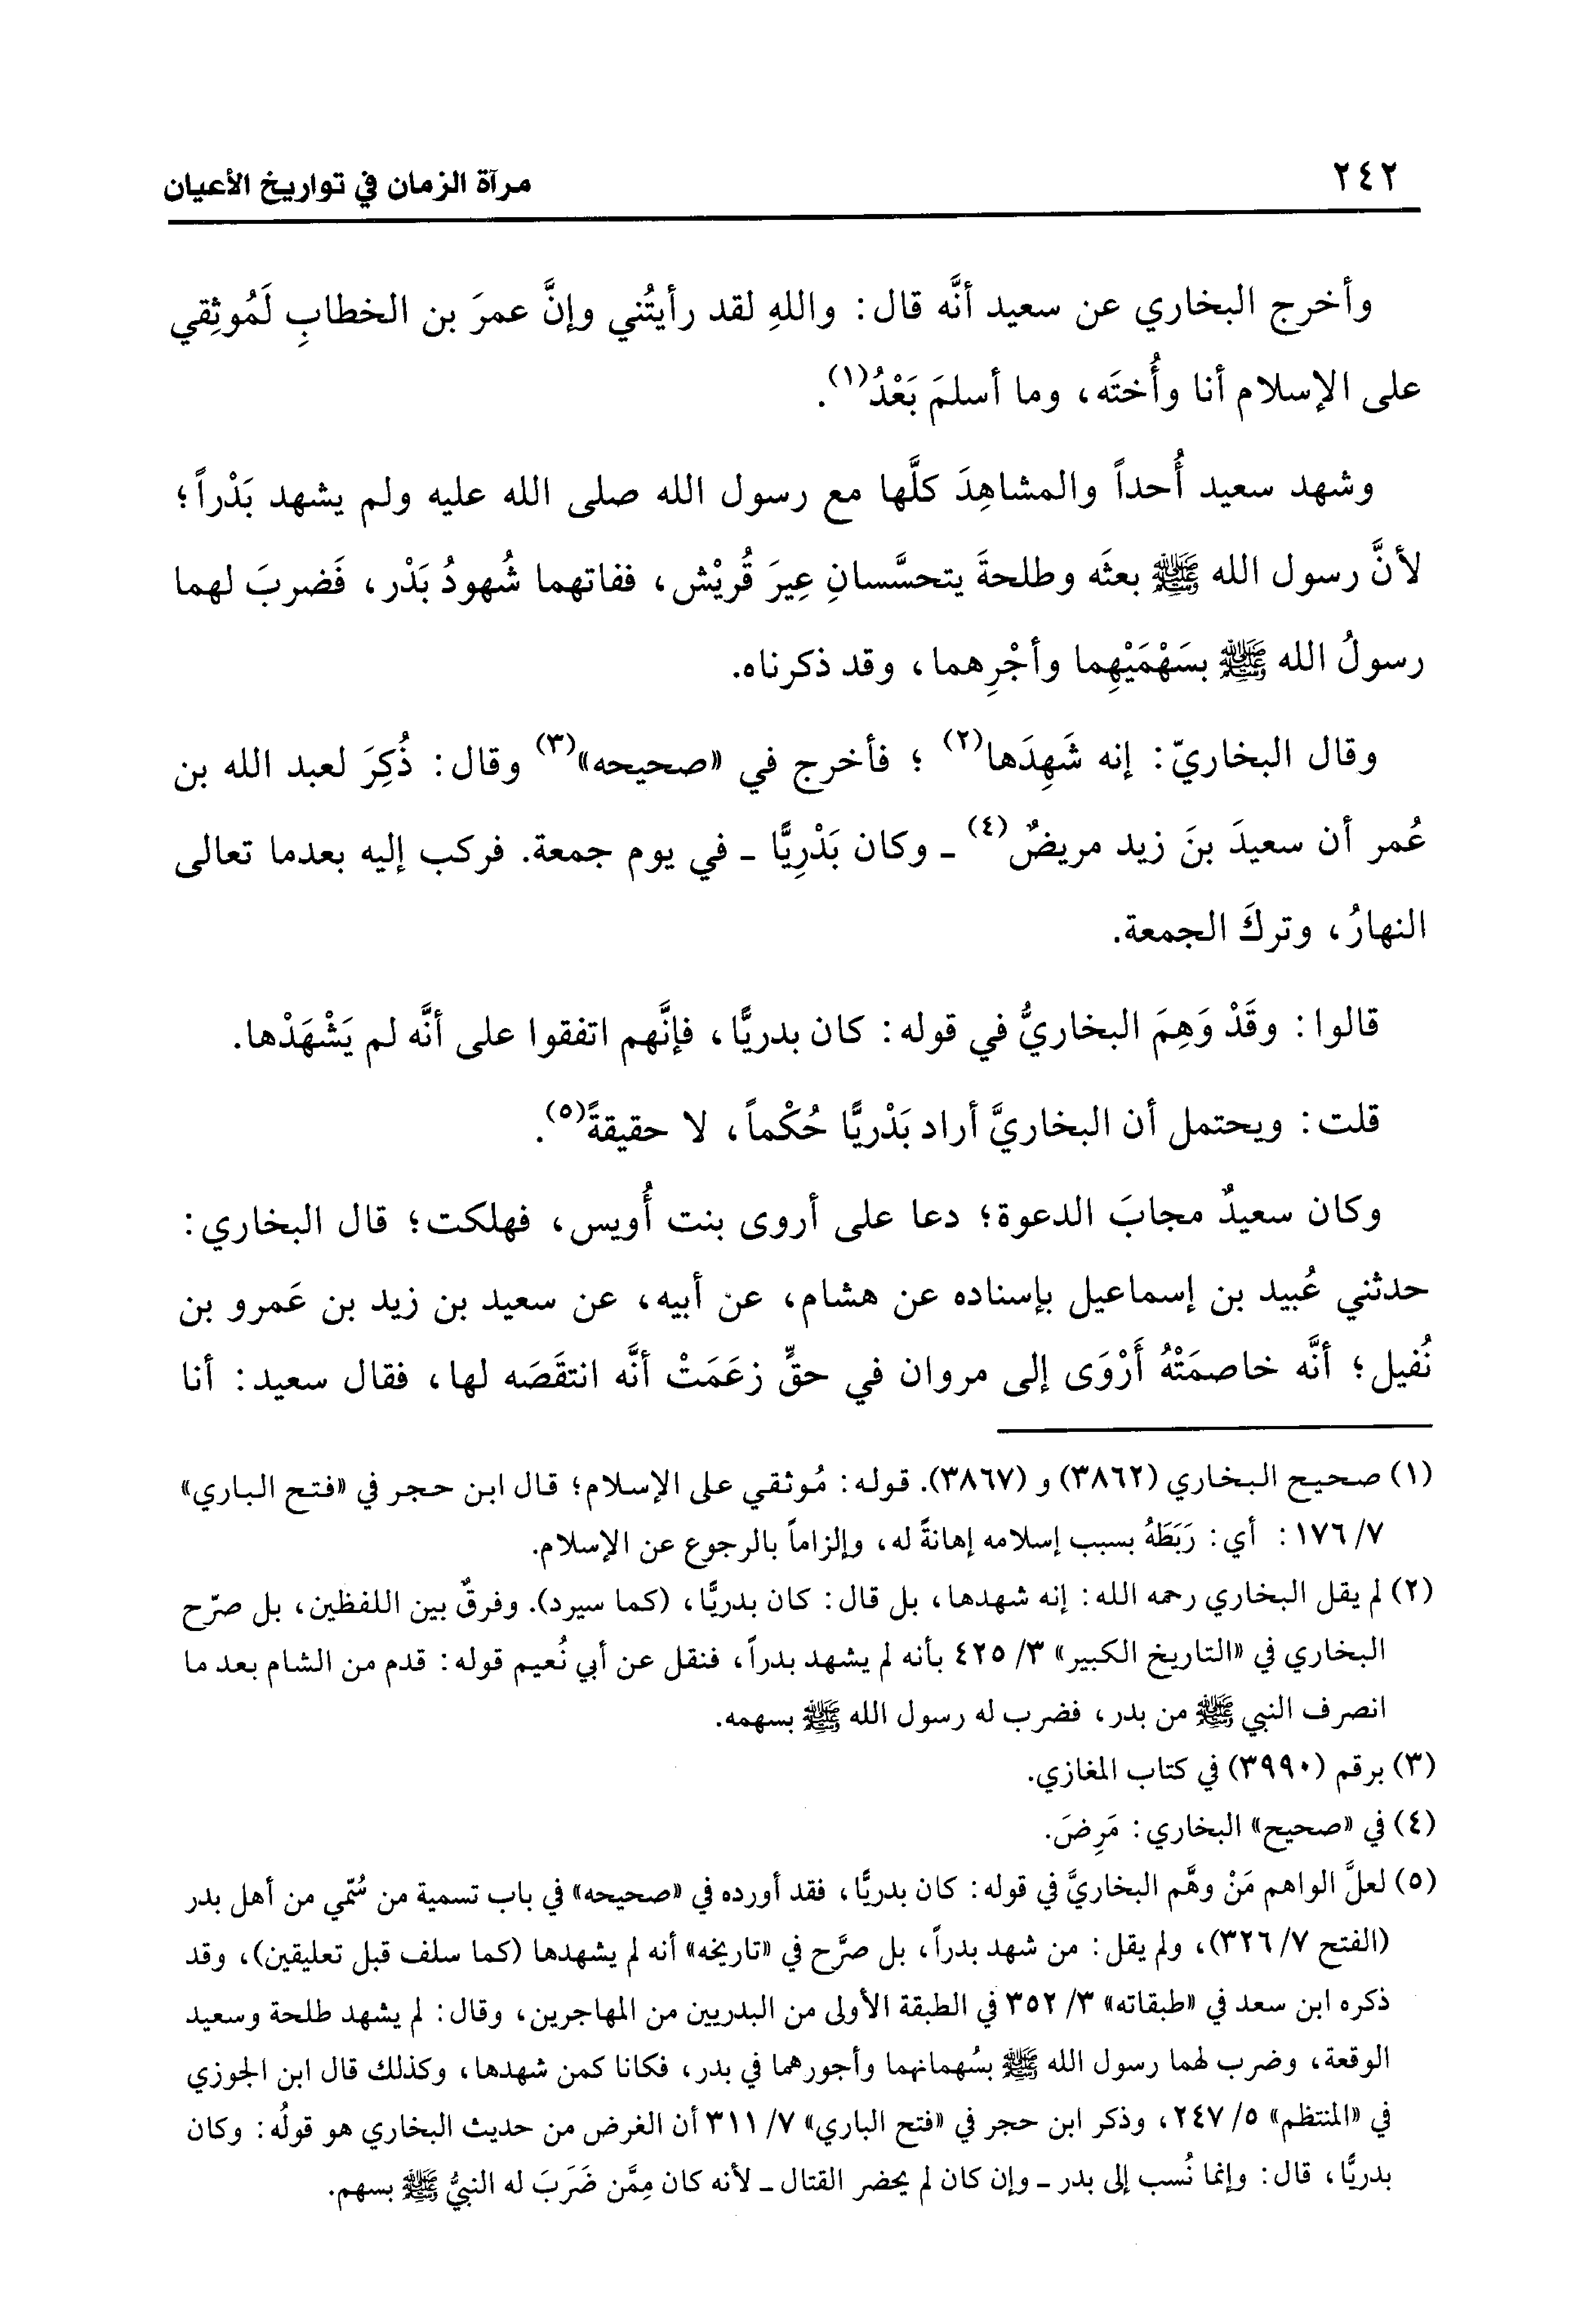 ٢٤٢
مرآة الزمان في تواريخ الأعيان
وأخرج البخاري عن سعيد أنَّه قال: واللهِ لقد رأيتُني وإنَّ عمرَ بن الخطابِ لَمُوثِقي
على الإسلام أنا وأُختَه، وما أسلمَ بَعْدُ(١).
وشهد سعيد أُحداً والمشاهِدَ كلَّها مع رسول الله صلى الله عليه ولم يشهد بَدْراً؛
لأنَّ رسول الله ﷺ بعثَه وطلحةَ يتحسَّسانِ عِيرَ قُريْش، ففاتهما شُهودُ بَدْر، فَضربَ لهما
رسولُ الله ﷺ بسَهْمَيْهِما وأجْرِهما، وقد ذكرناه.
وقال البخاريّ: إنه شَهِدَها(٢) ؛ فأخرج في «صحيحه»(٣) وقال: ذُكِرَ لعبد الله بن
عُمر أن سعيدَ بنَ زيد مريضٌ(٤) ـ وكان بَدْرِيًّا ـ في يوم جمعة. فركب إليه بعدما تعالى
النهارُ، وتركَ الجمعة.
قالوا: وقَدْ وَهِمَ البخاريُّ في قوله: كان بدريًّا، فإنَّهم اتفقوا على أنَّه لم يَشْهَدْها.
قلت: ويحتمل أن البخاريَّ أراد بَدْريًّا حُكْماً، لا حقيقةً(٥).
وكان سعيدٌ مجابَ الدعوة؛ دعا على أروى بنت أُويس، فهلكت؛ قال البخاري:
حدثني عُبيد بن إسماعيل بإسناده عن هشام، عن أبيه، عن سعيد بن زيد بن عَمرو بن
نُفيل؛ أنَّه خاصمَتْهُ أَرْوَى إلى مروان في حقٍّ زعَمَتْ أنَّه انتقَصَه لها، فقال سعيد: أنا
(١) صحيح البخاري (٣٨٦٢) و (٣٨٦٧). قوله: مُوثقي على الإسلام؛ قال ابن حجر في «فتح الباري»
٧/ ١٧٦: أي: رَبَطَهُ بسبب إسلامه إهانةً له، وإلزاماً بالرجوع عن الإسلام.
(٢) لم يقل البخاري رحمه الله: إنه شهدها، بل قال: كان بدريًّا، (كما سيرد). وفرقٌ بين اللفظين، بل صرّح
البخاري في «التاريخ الكبير» ٣/ ٤٢٥ بأنه لم يشهد بدراً، فنقل عن أبي نُعيم قوله: قدم من الشام بعد ما
انصرف النبي ﷺ من بدر، فضرب له رسول الله ﷺ بسهمه.
(٣) برقم (٣٩٩٠) في كتاب المغازي.
(٤) في «صحيح» البخاري: مَرِضَ.
(٥) لعلَّ الواهم مَنْ وهَّم البخاريَّ في قوله: كان بدريًّا، فقد أورده في «صحيحه» في باب تسمية من سُمّي من أهل بدر
(الفتح ٧/ ٣٢٦)، ولم يقل: من شهد بدراً، بل صرَّح في «تاريخه» أنه لم يشهدها (كما سلف قبل تعليقين)، وقد
ذكره ابن سعد في «طبقاته» ٣/ ٣٥٢ في الطبقة الأولى من البدريين من المهاجرين، وقال: لم يشهد طلحة وسعيد
الوقعة، وضرب لهما رسول الله ﷺ بسُهمانهما وأجورهما في بدر، فكانا كمن شهدها، وكذلك قال ابن الجوزي
في «المنتظم» ٥/ ٢٤٧، وذكر ابن حجر في «فتح الباري» ٧/ ٣١١ أن الغرض من حديث البخاري هو قولُه: وكان
بدريًّا، قال: وإنما نُسب إلى بدر ـ وإن كان لم يحضر القتال ـ لأنه كان مِمَّن ضَرَبَ له النبيُّ ﷺ بسهم.